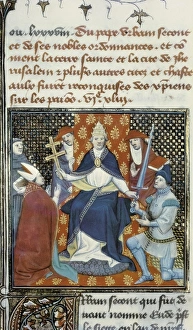 ou. lxxxviii. Du pape urbain second
et de ses nobles ordonnances. et co
ment la terre sainte et la cite de Jhe
rusalem z pluiss autres citez et chaste
aulx furent reconquises des xpiens
sur les paiens
Urbain second qui fut de
uant nomme Eude
le siege en lan de